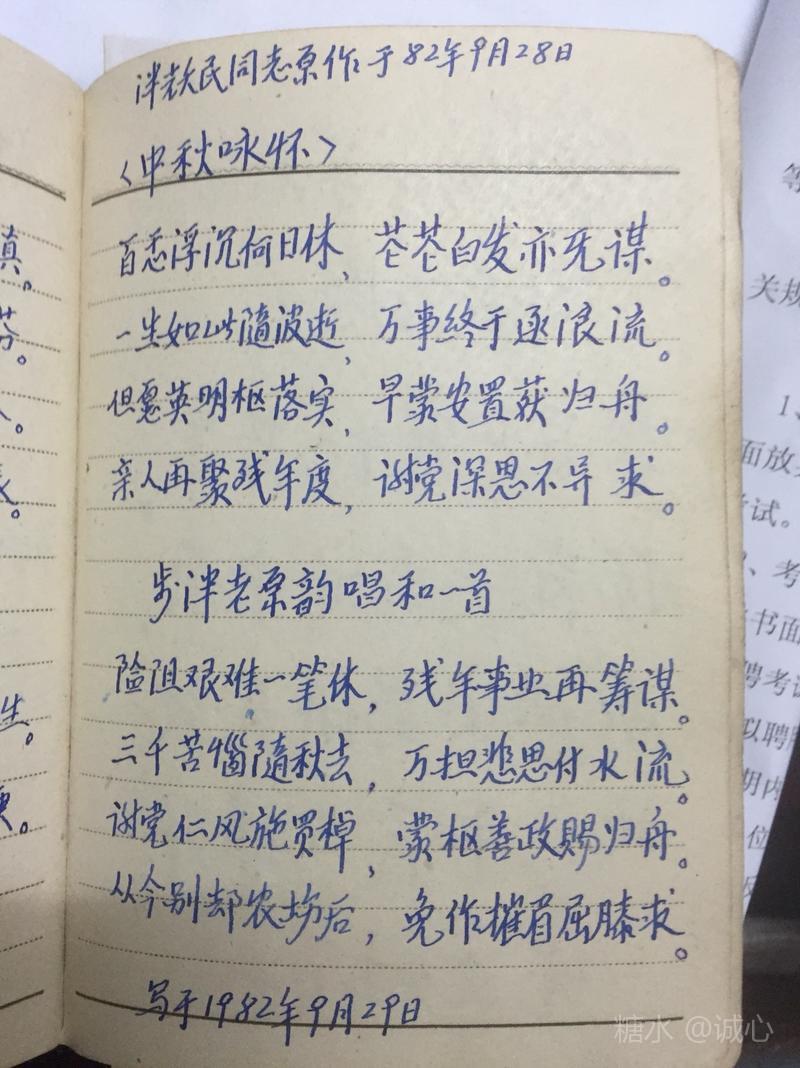 泮铁民同志原作于82年9月28日
<中秋咏怀>
百态浮沉何日休，苍苍白发亦无谋。
一生如此随波逝，万事终于逐浪流。
但愿英明枢落实，早蒙安置获归舟。
亲人再聚残年度，谢党深恩不异求。
步泮老原韵唱和一首
险阻艰难一笔休，残年事业再筹谋。
三千苦恼随秋去，万担悲思付水流。
谢党仁风施买棹，蒙枢善政赐归舟。
从今别却农场后，免作摧眉屈膝求。
写于1982年9月29日
真。
芬。
生。
等
关规
1、
面放
考试。
、考
书面
聘考试
拟聘
期内
位
糖水 @诚心